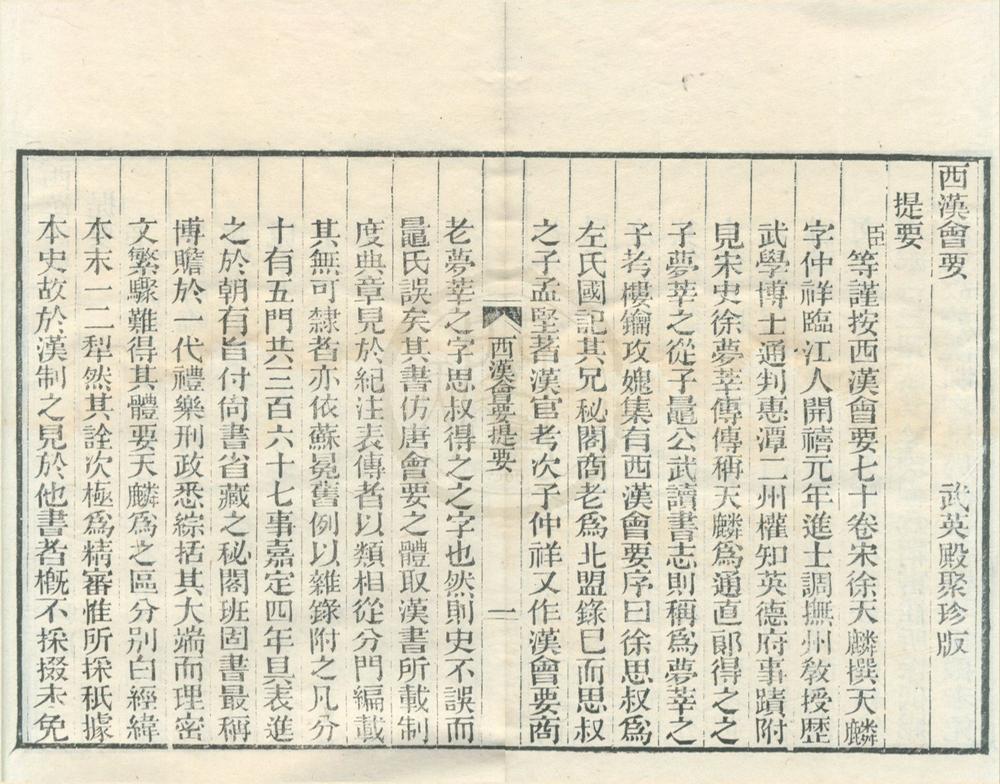 西漢會要
武英殿聚珍版
提要
臣等謹按西漢會要七十卷宋徐天麟撰天麟
字仲祥臨江人開禧元年進士調撫州教授歴
武學博士通判惠潭二州權知英德府事蹟附
見宋史徐夢莘傳傳稱天麟爲通直郞得之之
子夢莘之從子鼂公武讀書志則稱爲夢莘之
子考樓鑰攻媿集有西漢會要序曰徐思叔爲
左氏國記其兄秘閣商老爲北盟錄已而思叔
之子孟堅著漢官考次子仲祥又作漢會要商
西漢會要提要
一
老夢莘之字思叔得之之字也然則史不誤而
鼂氏誤矣其書仿唐會要之體取漢書所載制
度典章見於紀注表傳者以類相從分門編載
其無可隸者亦依蘇冕舊例以雜錄附之凡分
十有五門共三百六十七事嘉定四年具表進
之於朝有旨付尙書省藏之秘閣班固書最稱
博贍於一代禮樂刑政悉綜括其大端而理密
文繁驟難得其體要天麟爲之區分別白經緯
本末一二犁然其詮次極爲精審惟所採秖據
本史故於漢制之見於他書者槪不採掇未免